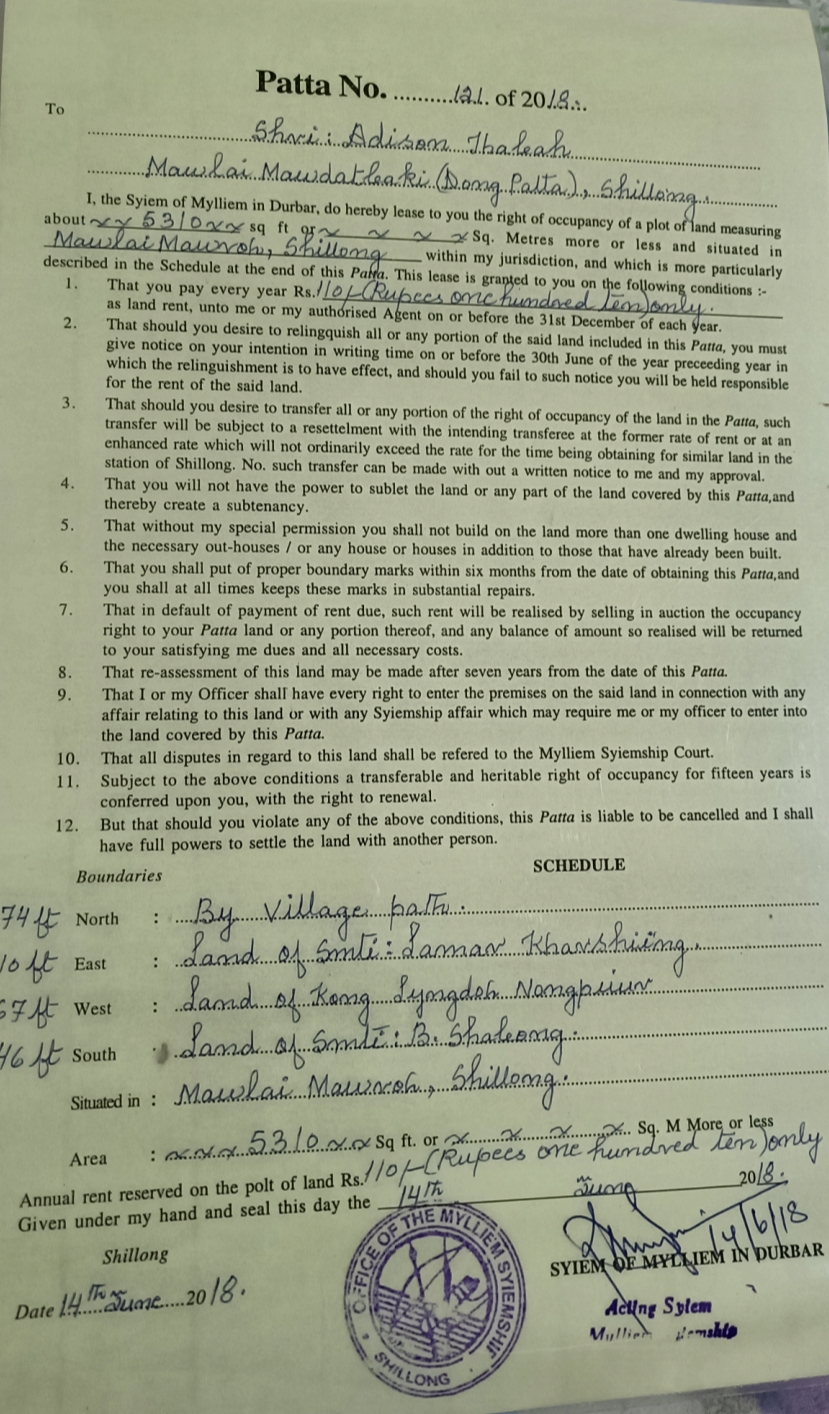 Patta No. ..........121. of 2018...
To
Shri: Adison Thaleah
Mawlai Mawdatbaki (Dong Patta), Shillong.
I, the Syiem of Mylliem in Durbar, do hereby lease to you the right of occupancy of a plot of land measuring
about x x 5310 x x sq ft or x x x x Sq. Metres more or less and situated in
Mawlai Mawroh, Shillong within my jurisdiction, and which is more particularly
described in the Schedule at the end of this Patta. This lease is granted to you on the following conditions :-
1. That you pay every year Rs. 110/-(Rupees one hundred ten) only.
as land rent, unto me or my authorised Agent on or before the 31st December of each year.
2. That should you desire to relingquish all or any portion of the said land included in this Patta, you must
give notice on your intention in writing time on or before the 30th June of the year preceeding year in
which the relinguishment is to have effect, and should you fail to such notice you will be held responsible
for the rent of the said land.
3. That should you desire to transfer all or any portion of the right of occupancy of the land in the Patta, such
transfer will be subject to a resettelment with the intending transferee at the former rate of rent or at an
enhanced rate which will not ordinarily exceed the rate for the time being obtaining for similar land in the
station of Shillong. No. such transfer can be made with out a written notice to me and my approval.
4. That you will not have the power to sublet the land or any part of the land covered by this Patta,and
thereby create a subtenancy.
5. That without my special permission you shall not build on the land more than one dwelling house and
the necessary out-houses / or any house or houses in addition to those that have already been built.
6. That you shall put of proper boundary marks within six months from the date of obtaining this Patta,and
you shall at all times keeps these marks in substantial repairs.
7. That in default of payment of rent due, such rent will be realised by selling in auction the occupancy
right to your Patta land or any portion thereof, and any balance of amount so realised will be returned
to your satisfying me dues and all necessary costs.
8. That re-assessment of this land may be made after seven years from the date of this Patta.
9. That I or my Officer shall have every right to enter the premises on the said land in connection with any
affair relating to this land or with any Syiemship affair which may require me or my officer to enter into
the land covered by this Patta.
10. That all disputes in regard to this land shall be refered to the Mylliem Syiemship Court.
11. Subject to the above conditions a transferable and heritable right of occupancy for fifteen years is
conferred upon you, with the right to renewal.
12. But that should you violate any of the above conditions, this Patta is liable to be cancelled and I shall
have full powers to settle the land with another person.
SCHEDULE
Boundaries
74 ft North : By Village path.
10 ft East : Land of Smti: Laman Kharshiing.
67 ft West : Land of Kong Lyngdoh Nongpiur
46 ft South : Land of Smti: B. Shabong.
Situated in : Mawlai Mawroh, Shillong.
Area : x x x 5310 x x Sq ft. or x x x x Sq. M More or less
Annual rent reserved on the polt of land Rs. 110/-(Rupees one hundred ten) only
Given under my hand and seal this day the 14th June 2018.
OFFICE OF THE MYLLIEM SYIEMSHIP
SHILLONG
14/6/18
SYIEM OF MYLLIEM IN DURBAR
Shillong
Acting Syiem
Date 14th June 2018.
Mylliem